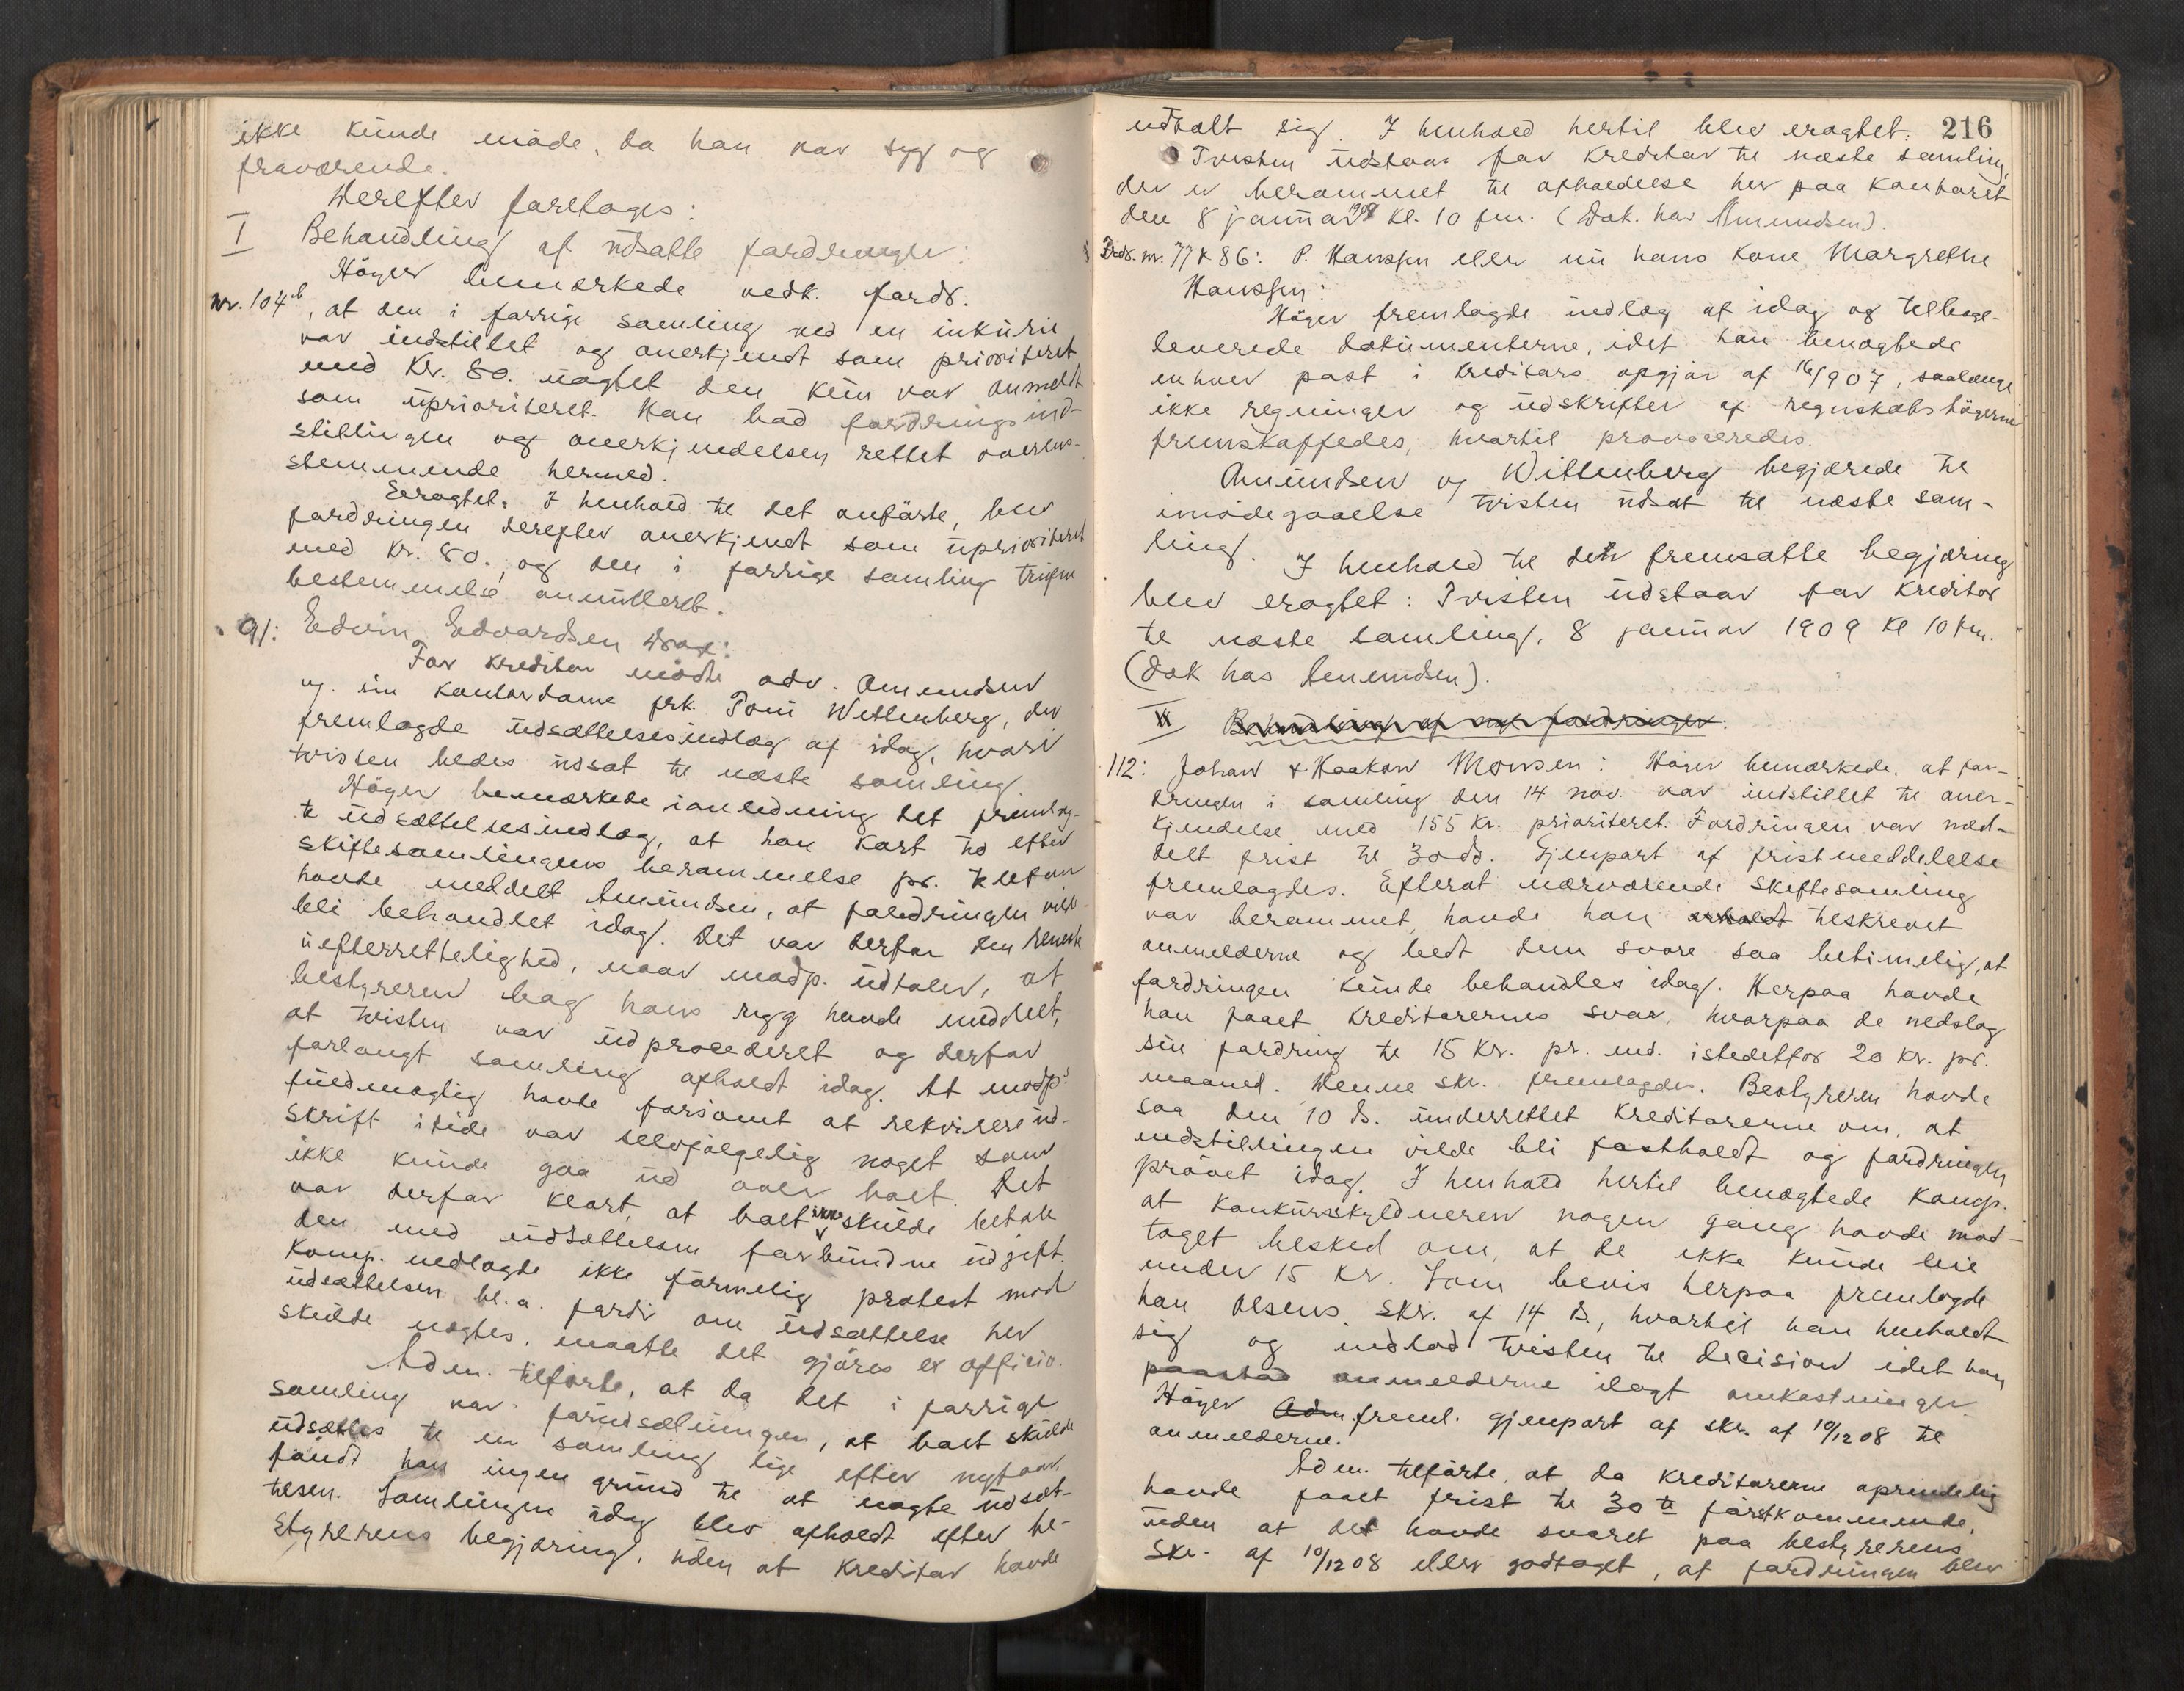 ikke kunde møde, da han var syg og
fraværende.
Derefter foretoges:
I Behandling af udsatte fordringer:
Høyer bemærkede vedk. fordr.
nr. 104b, at den i forrige samling ved en inkurie
var indstillet og anerkjendt som prioriteret
med Kr. 80. uagtet den kun var anmeldt
som uprioriteret. Han bad fordringsind-
stillingen og anerkjendelsen rettet overens-
stemmende hermed.
Eragtet. I henhold til det anførte, blev
fordringen derefter anerkjendt som uprioriteret
med Kr. 80., og den i forrige samling trufne
bestemmelse annulleret.
91: Edvin Edvardsen Drag:
For kreditor mødte adv. Amundsen
v. sin kontordame frk. Toni Wittenberg, der
fremlagde udsættelsesindlæg af idag, hvori
tvisten bedes udsat til næste samling.
Høyer bemærkede i anledning det fremlag-
te udsættelsesindlæg, at han kort tid efter
skiftesamlingens berammelse pr. telefon
havde meddelt Amundsen, at fordringen vilde
bli behandlet idag. Det var derfor den reneste
uefterrettelighed, naar modp. udtaler, at
bestyreren bag hans rygg havde meddelt,
at tvisten var udprocederet og derfor
forlangt samling afholdt idag. At modp.s
fuldmægtig havde forsømt at rekvirere ud-
skrift itide var selvfølgelig noget som
ikke kunde gaa ud over boet. Det
var derfor klart, at boet ikke skulde betale
den med udsættelsen forbundne udgift.
Komp. nedlagde ikke formelig protest mod
udsættelsen bl.a. fordi om udsættelse her
skulde nægtes, maatte det gjøres ex officio.
Adm. tilførte, at da det i forrige
samling var forudsætningen, at boet skulde
udsættes til en samling lige efter nytaar,
fandt han ingen grund til at nægte udsæt-
telsen. Samlingen idag blev afholdt efter be-
styrerens begjæring, uden at kreditor havde
216
udtalt sig. I henhold hertil blev eragtet:
Tvisten udstaar for kreditor til næste samling,
der er berammet til afholdelse her paa kontoret
den 8 januar 1909 kl. 10 fm. (Dok. hos Amundsen).
Fordr. nr. 77 & 86: P. Hanssen eller nu hans kone Margrethe
Hanssen:
Høyer fremlagde indlæg af idag og tilbage-
leverede dokumenterne, idet han benægtede
enhver post i kreditors opgjør af 1907, saalænge
ikke regninger og udskrifter af regnskabsbøgerne
fremskaffedes, hvortil provoceredes.
Amundsen v/ Wittenberg begjærede til
imødegaaelse tvisten udsat til næste sam-
ling.
I henhold til den fremsatte begjæring
blev eragtet: Tvisten udstaar for kreditor
til næste samling, 8 januar 1909 kl 10 fm.
(dok hos Amundsen).
II Behandling af nye fordringer.
112: Johan & Haakon Monsen: Høyer bemærkede, at for-
dringen i samling den 14 nov. var indstillet til aner-
kjendelse med 155 Kr. prioriteret. Fordringen var med-
delt frist til 30 dd. Gjenpart af fristmeddelelse
fremlagdes. Efterat nærværende skiftesamling
var berammet, havde han erholdt tilskrevet
anmelderne og bedt dem svare saa betimelig, at
fordringen kunde behandles idag. Herpaa havde
han faaet kreditorernes svar, hvorpaa de nedslog
sin fordring til 15 Kr. pr. md. istedetfor 20 kr. pr.
maaned. Denne skr. fremlagdes. Bestyreren havde
saa den 10 ds. underrettet kreditorerne om, at
indstillingen vilde bli fastholdt og fordringen
prøvet idag. I henhold hertil benægtede komp.
at konkursskyldneren nogen gang havde mod-
taget besked om, at de ikke kunde leie
under 15 Kr. Som bevis herpaa fremlagde
han Olsens skr. af 14 ds., hvortil han henholdt
sig og indlod tvisten til decision idet han
paastod anmelderne ilagt omkostninger.
Høyer Adm freml. gjenpart af skr. af 10/12 08 til
anmelderne.
Adm. tilførte, at da kreditorerne oprindelig
havde faaet frist til 30te førstkommende,
uden at det havde svaret paa bestyrerens
skr. af 10/12 08 eller godtaget, at fordringen blev